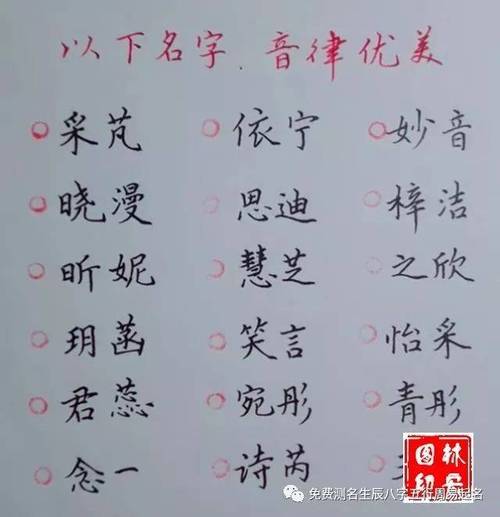 以下名字.音律优美
采芃 依宁 妙音
晓漫 思迪 梓洁
昕妮 慧芝 之欣
玥菡 笑言 怡采
君蕊 宛彤 青彤
念一 诗芮
免费测名生辰八字五行周易起名